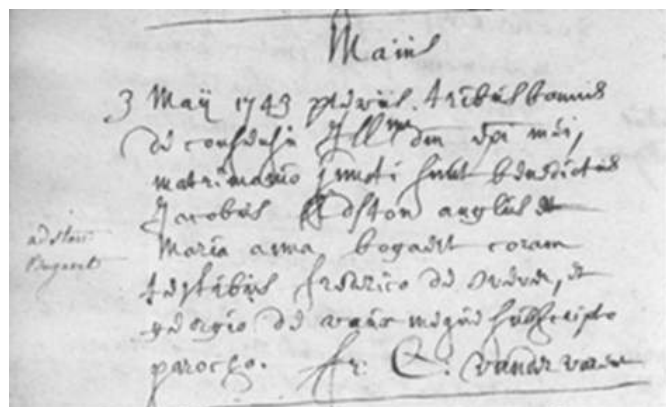 Maius
3 Maij 1743 præviis tribus bannis
de consensu Illmi dni epi mei,
matrimonio juncti sunt benedictus
Jacobus Edston anglus et
Maria anna bogaert coram
testibus frederico de et
georgio de meque subscripto
parocho. fr. C.